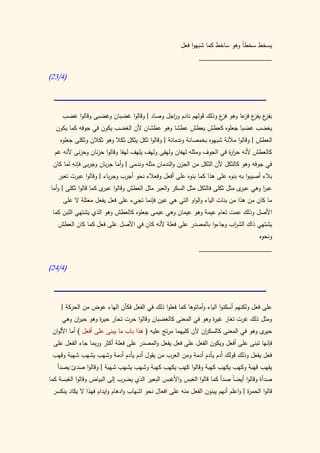 يسخط سخطاً وهو ساخط كما شبهوا فعل
(23/4)
يفزع بفزع فزعا وهو فزع وذلك قولهم نادم وراجل وصاد | وقالوا غضبان وغضبى وقالوا غضب
يغضب غضبا جعلوه كعطش يعطش عطشا وهو عطشان لأن الغضب يكون في جوفه كما يكون
العطش | وقالوا ملآنة شبهوه بخمصانة وندمانة | وقالوا ثكل يثكل ثكلا وهو ثكلان وثكلى جعلوه
كالعطش لأنه حرارة في الجوف ومثله لهفان ولهفى ولهف يلهف لهفا وقالوا حزنان وحزنى لأنه غم
في جوفه وهو كالثكل لأن الثكل من الحزن والندمان مثله وندمى | وأما جربان وجربى فإنه لما كان
بلاء أصيبوا به بنوه على هذا كما بنوه على أفعل وفعلاء نحو أجرب وجرباء | وقالوا عبرت تعبر
عبرا وهي عبرى مثل ثكلى فالثكل مثل السكر والعبر مثل العطش وقالوا عبرى كما قالوا ثكلى | وأما
ما كان من هذا من بنات الياء والواو التي هي عين فإنما تجيء على فعل يفعل معتلة لا على
الأصل وذلك عمت تعام عيمة وهو عيمان وهي عيمى جعلوه كالعطش وهو الذي يشتهى اللبن كما
يشتهي ذاك الشراب وجاءوا بالمصدر على فعلة لأنه كان في الأصل على فعل كما كان العطش
ونحوه
(24/4)
على فعل ولكنهم أسكنوا الياء وأماتوها كما فعلوا ذلك في الفعل فكأن الهاء عوض من الحركة |
ومثل ذلك غرت تغار غيرة وهو في المعنى كالغضبان وقالوا حرت تحار حيرة وهو حيران وهي
حيرى وهو في المعنى كالسكران لأن كليهما مرتج عليه ( هذا باب ما يبنى على أفعل ) أما الألوان
فإنها تبنى على أفعل ويكون الفعل على فعل يفعل والمصدر على فعلة أكثر وربما جاء الفعل على
فعل يفعل وذلك قولك أدم يأدم أدمة ومن العرب من يقول أدم يأدم أدمة وشهب يشهب شهبة وقهب
يقهب قهبة وكهب يكهب كهبة وقالوا كهب يكهب كهبة وشهب يشهب شهبة | وقالوا صدئ يصدأ
صدأة وقالوا أيضاً صدأ كما قالوا الغبس والأغبس البعير الذي يضرب إلى البياض وقالوا الغبسة كما
قالوا الحمرة | واعلم أنهم يبنون الفعل منه على افعال نحو اشهاب وادهام وايدام فهذا لا يكاد ينكسر